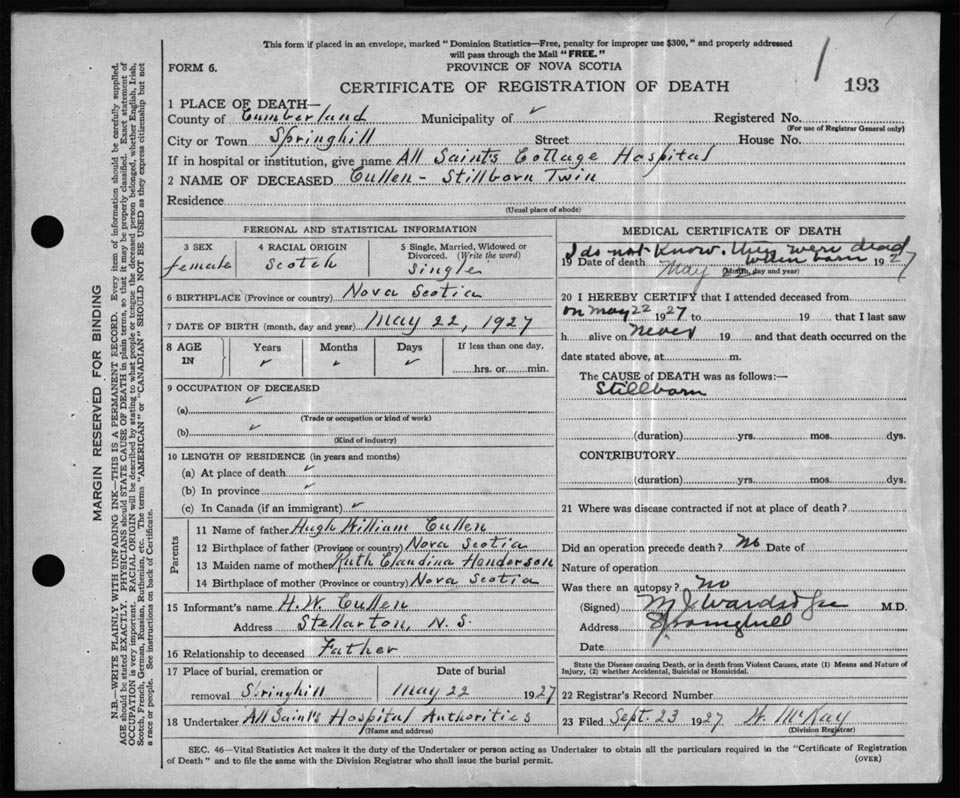 This form if placed in an envelope, marked "Dominion Statistics—Free, penalty for improper use $300," and properly addressed
will pass through the Mail "FREE."
FORM 6.
PROVINCE OF NOVA SCOTIA
1
193
CERTIFICATE OF REGISTRATION OF DEATH
1 PLACE OF DEATH—
County of Cumberland Municipality of ✓ Registered No.
(For use of Registrar General only)
City or Town Springhill Street House No.
If in hospital or institution, give name All Saints Cottage Hospital
2 NAME OF DECEASED Cullen - Stillborn Twin
Residence
(Usual place of abode)
PERSONAL AND STATISTICAL INFORMATION
3 SEX 4 RACIAL ORIGIN 5 Single, Married, Widowed or Divorced. (Write the word)
female Scotch Single
6 BIRTHPLACE (Province or country) Nova Scotia
7 DATE OF BIRTH (month, day and year) May 22, 1927
8 AGE IN Years Months Days If less than one day,
✓ ✓ ✓ hrs. or min.
9 OCCUPATION OF DECEASED
(a) ✓
(Trade or occupation or kind of work)
(b) ✓
(Kind of industry)
10 LENGTH OF RESIDENCE (in years and months)
(a) At place of death ✓
(b) In province ✓
(c) In Canada (if an immigrant) ✓
Parents
11 Name of father Hugh William Cullen
12 Birthplace of father (Province or country) Nova Scotia
13 Maiden name of mother Ruth Claudina Henderson
14 Birthplace of mother (Province or country) Nova Scotia
15 Informant's name H. W. Cullen
Address Stellarton, N. S.
16 Relationship to deceased Father
17 Place of burial, cremation or removal Springhill Date of burial May 22 1927
18 Undertaker All Saint's Hospital Authorities
(Name and address)
MEDICAL CERTIFICATE OF DEATH
I do not know. they were dead
when born
19 Date of death May 1927
(Month, day and year)
20 I HEREBY CERTIFY that I attended deceased from
on May 22 1927 to 19 that I last saw
h alive on Never 19 and that death occurred on the
date stated above, at m.
The CAUSE of DEATH was as follows:—
Stillborn
(duration) yrs. mos. dys.
CONTRIBUTORY
(duration) yrs. mos. dys.
21 Where was disease contracted if not at place of death?
Did an operation precede death? No Date of
Nature of operation
Was there an autopsy? No
(Signed) M.D.
Address Springhill
Date
State the Disease causing Death, or in death from Violent Causes, state (1) Means and Nature of
Injury, (2) whether Accidental, Suicidal or Homicidal.
22 Registrar's Record Number
23 Filed Sept. 23 1927 H. McKay
(Division Registrar)
SEC. 46—Vital Statistics Act makes it the duty of the Undertaker or person acting as Undertaker to obtain all the particulars required in the "Certificate of Registration
of Death" and to file the same with the Division Registrar who shall issue the burial permit.
(OVER)
MARGIN RESERVED FOR BINDING
N.B.—WRITE PLAINLY WITH UNFADING INK—THIS IS A PERMANENT RECORD. Every item of information should be carefully supplied.
AGE should be stated EXACTLY. PHYSICIANS should STATE CAUSE OF DEATH in plain terms, so that it may be properly classified. Exact statement of
OCCUPATION is very important. RACIAL ORIGIN will be described by stating to what people or tongue the deceased person belonged, whether English, Irish,
Scotch, French, German, Russian, Ruthenian, etc. The terms "AMERICAN" or "CANADIAN" SHOULD NOT BE USED as they express citizenship but not
a race or people. See instructions on back of Certificate.